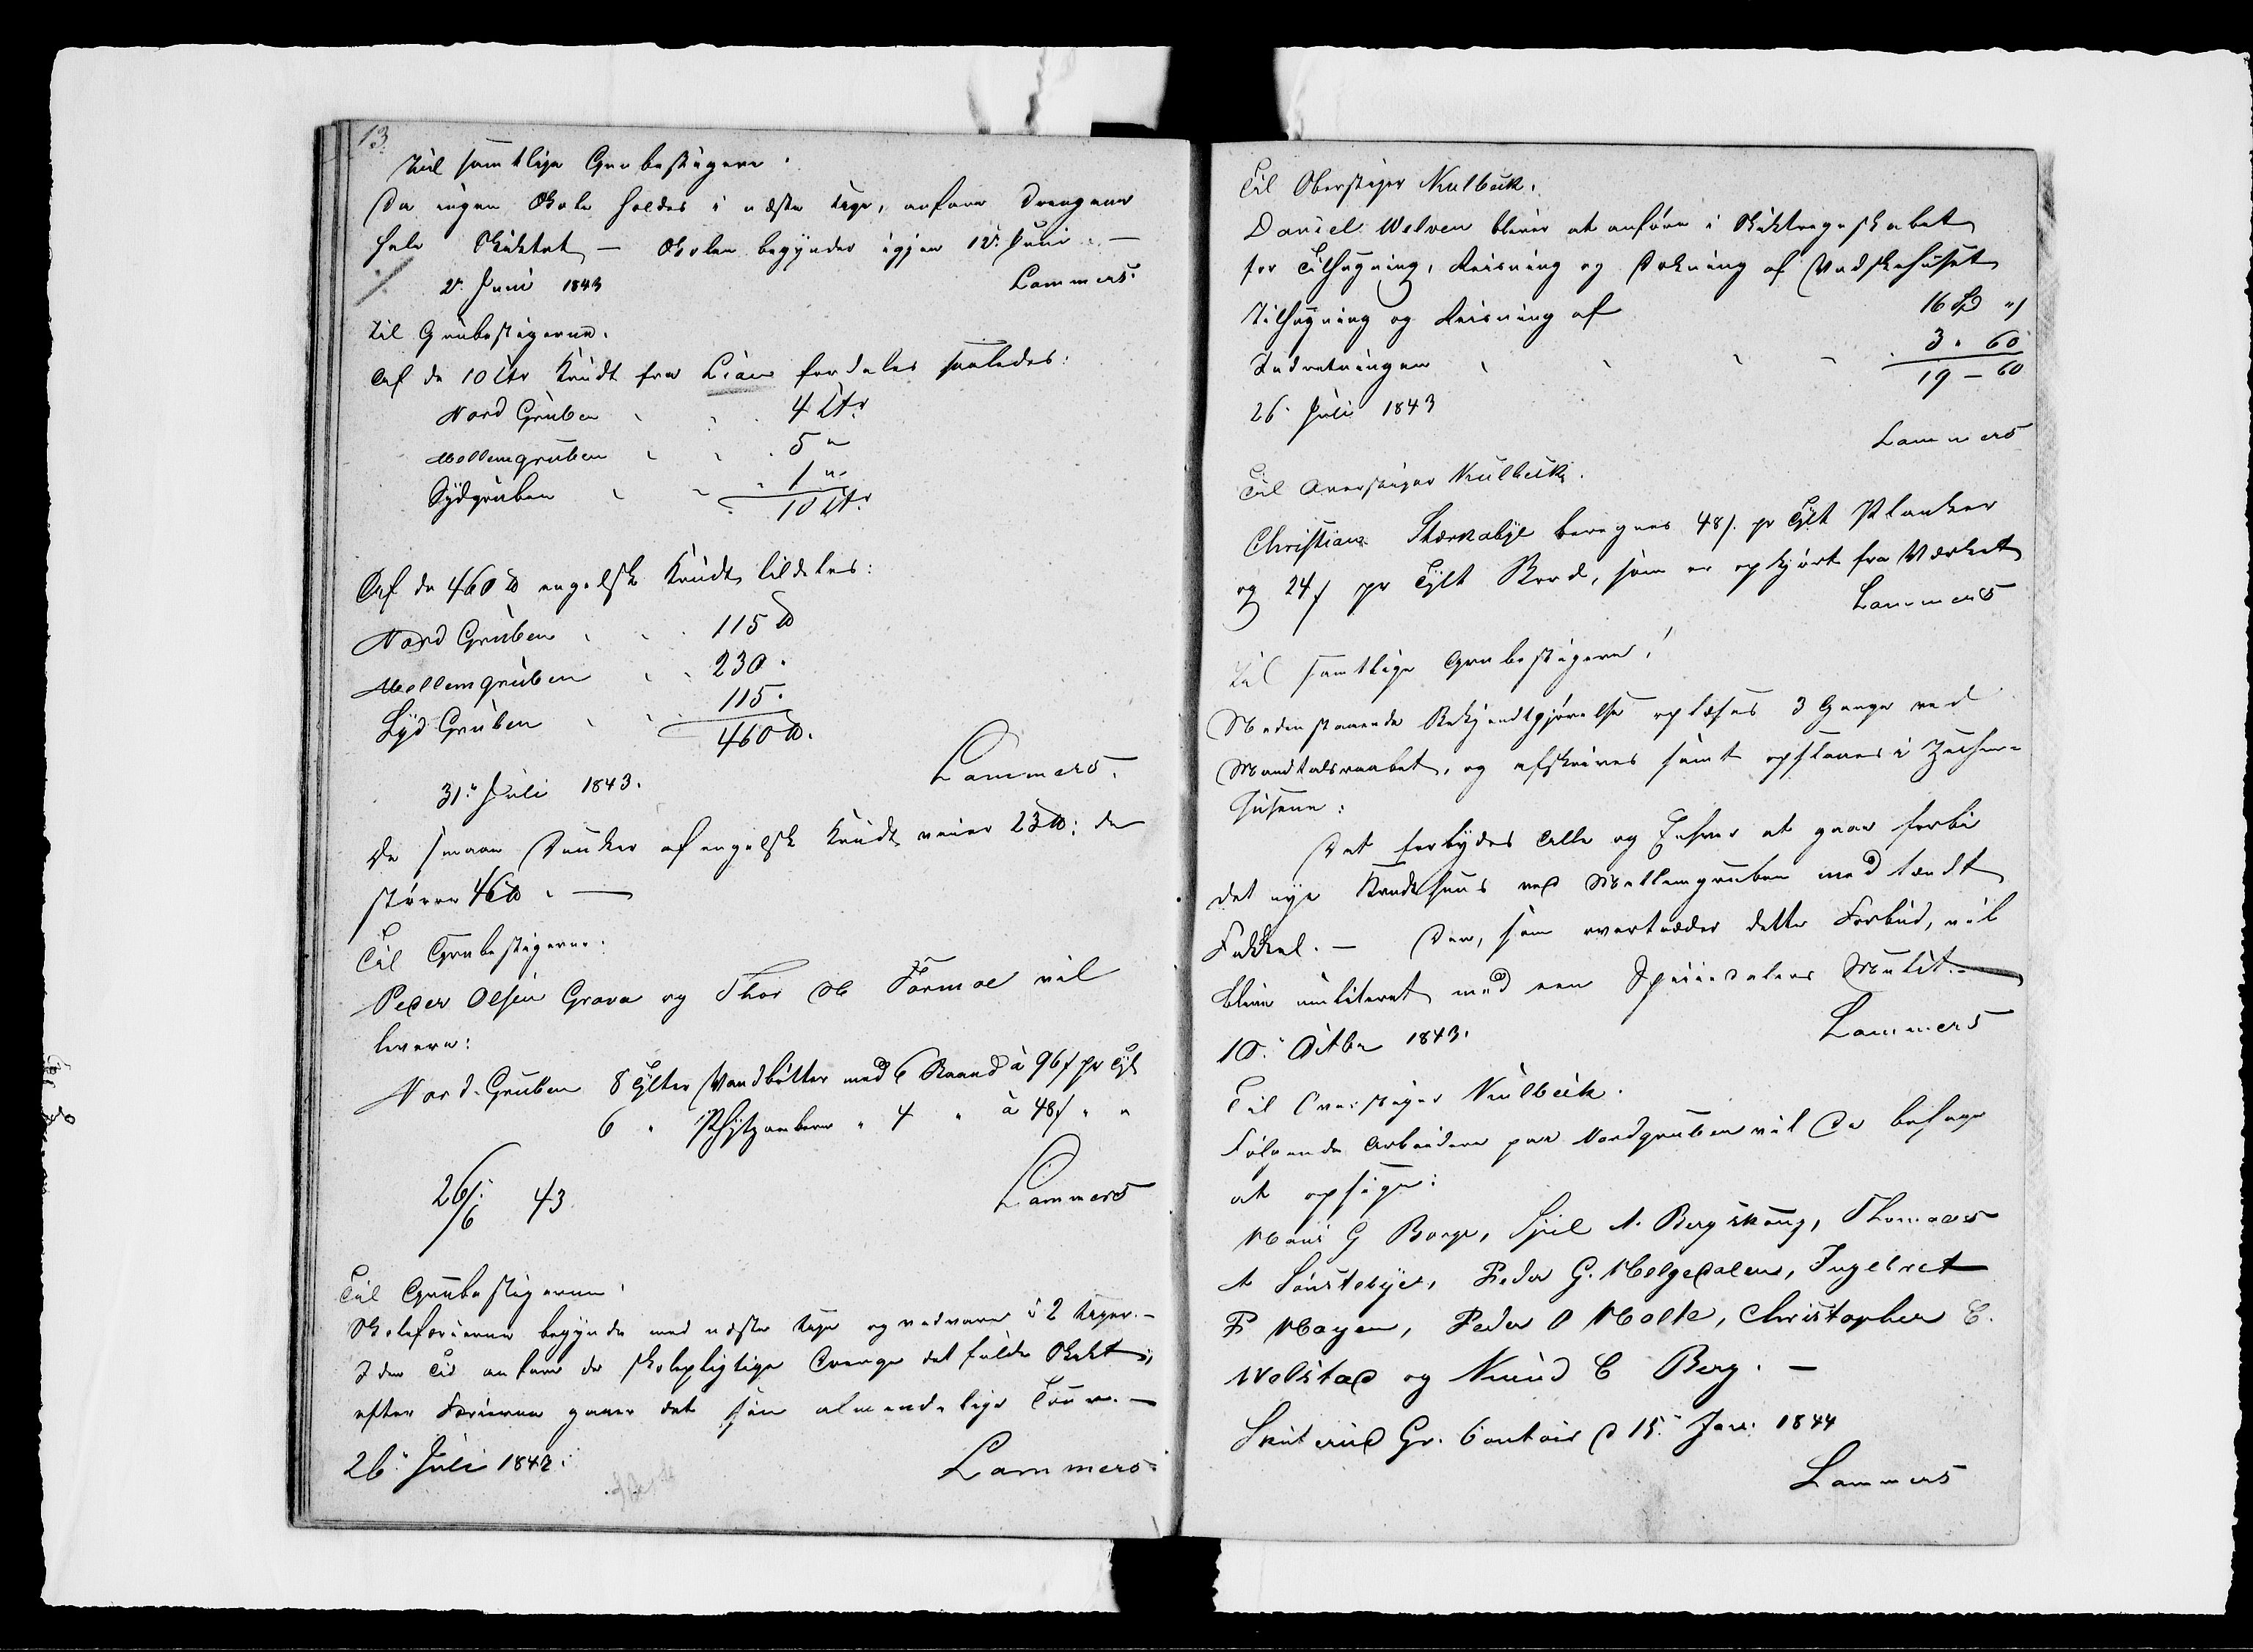 13.
Til samtlige Grubestigere.
Da ingen Skole holdes i næste Uge, anfare Drengene
hele Skiktet — Skolen begynder igjen 12. Juni. —
2. Juni 1843 Lammers.
Til Grubestigerne.
Af de 10 Ctr Krudt fra Lian fordeles saaledes:
Nord Gruben 4 Ctr
Mellemgruben 5 "
Sydgruben 1 "
10 Ctr
Af de 460 ℔ engelsk Krudt tildeles:
Nord Gruben 115 ℔
Mellemgruben 230.
Syd Gruben 115.
460 ℔.
31. Juli 1843. Lammers.
De smaae Dunker af engelsk Krudt veier 23 ℔; de
større 46 ℔. —
Til Grubestigerne.
Peder Olsen Grava og Thor Formoe vil
levere:
Nord-Gruben 8 Tylter Vandbøtter med 6 Baand à 96 ß pr Tylt
6 " " 4 " à 48 ß " "
26/6 43 Lammers
Til Grubestigerne!
Skoleferierne begynde med næste Uge og vedvare i 2 Uger. —
I den Tid anfare de skolepligtige Drenge det fulde Skikt;
efter Ferierne gaaer det sin almindelige Tour. —
26. Juli 1843. Lammers.
Til Oberstiger Kulbeck.
Daniel Welven bliver at anføre i Skiktregnskabet
for Tilhugning, Reisning og Tækning af Vadskehuset
Tilhugning og Reisning af 16 Spd "
Indretningen 3. 60
19 – 60
26. Juli 1843
Lammers
Til Overstiger Kulbeck.
Christian Størkabye beregnes 48 ß. pr Tylt Planker
og 24 ß pr Tylt Bord, som er opkjørt fra Værket
Lammers
Til samtlige Grubestigere!
Nedenstaaende Bekjendtgjørelse oplæses 3 Gange ved
Mandtalsraabet, og afskrives samt opslaaes i Zechen-
husene:
Det forbydes Alle og Enhver at gaae forbi
det nye Krudthuus ved Mellemgruben med tændt
Fakkel. — Den, som overtræder dette Forbud, vil
blive mulkteret med een Speciedalers Mulkt. —
10. Octbr 1843. Lammers
Til Overstiger Kulbeck.
Følgende Arbeidere paa Nordgruben vil De behage
at opsige:
Hans G Borge, A. Bergskoug, Thomas
A Peder G. Helgedalen, Ingebret
P Hagen, Peder O Holte, Christopher C.
Wolstad og Knud C Berg. —
Skuterud Gr. Contoir d 15. Jan: 1844
Lammers